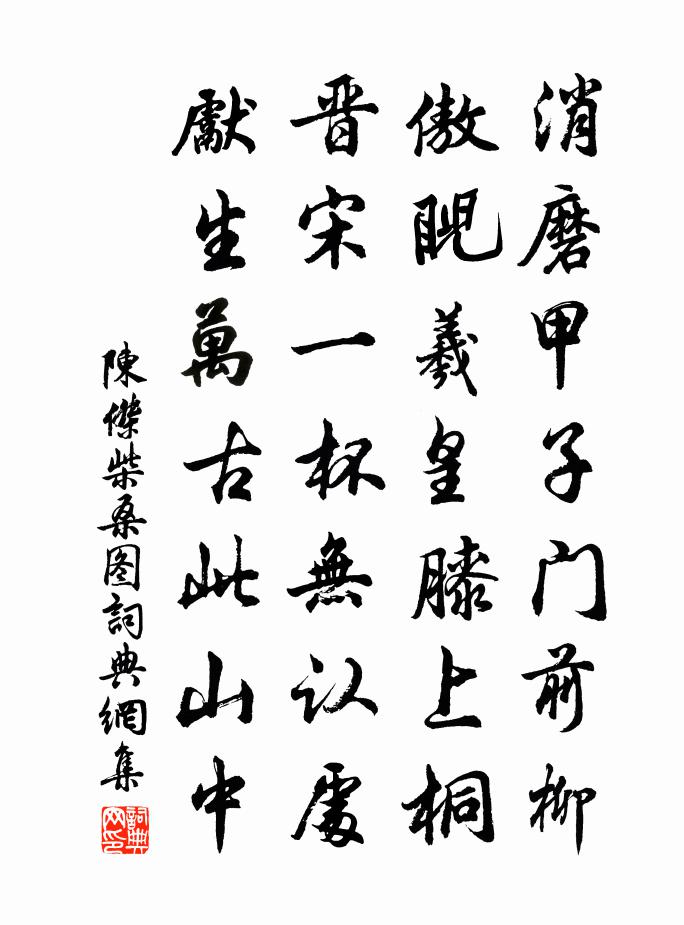 消磨甲子门前柳
傲睨羲皇膝上桐
晋宋一杯無认處
獻生萬古此山中
陳傑柴桑图詞典網集
詞典
网印